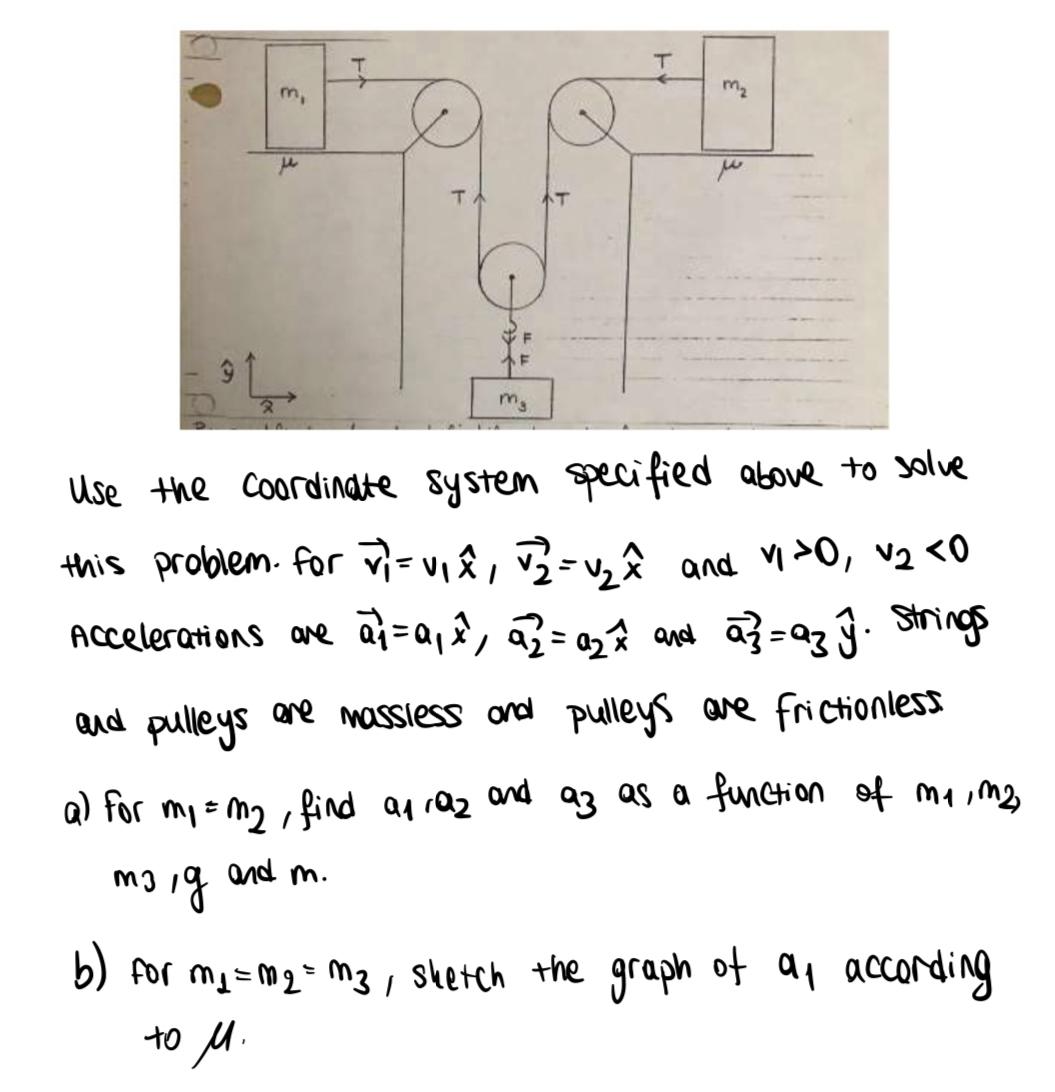 m₁ T T m₂
μ μ
T T
F
F
ŷ
x̂ m₃
Use the Coordinate system specified above to solve
this problem. for v₁⃗ = v₁ x̂, v₂⃗ = v₂ x̂ and v₁ >0, v₂ <0
Accelerations are a₁⃗ = a₁ x̂, a₂⃗ = a₂ x̂ and a₃⃗ = a₃ ŷ. Strings
and pulleys are massless and pulleys are frictionless
a) for m₁ = m₂, find a₁, a₂ and a₃ as a function of m₁, m₂,
m₃, g and m.
b) for m₁ = m₂ = m₃, sketch the graph of a₁ according
to μ.